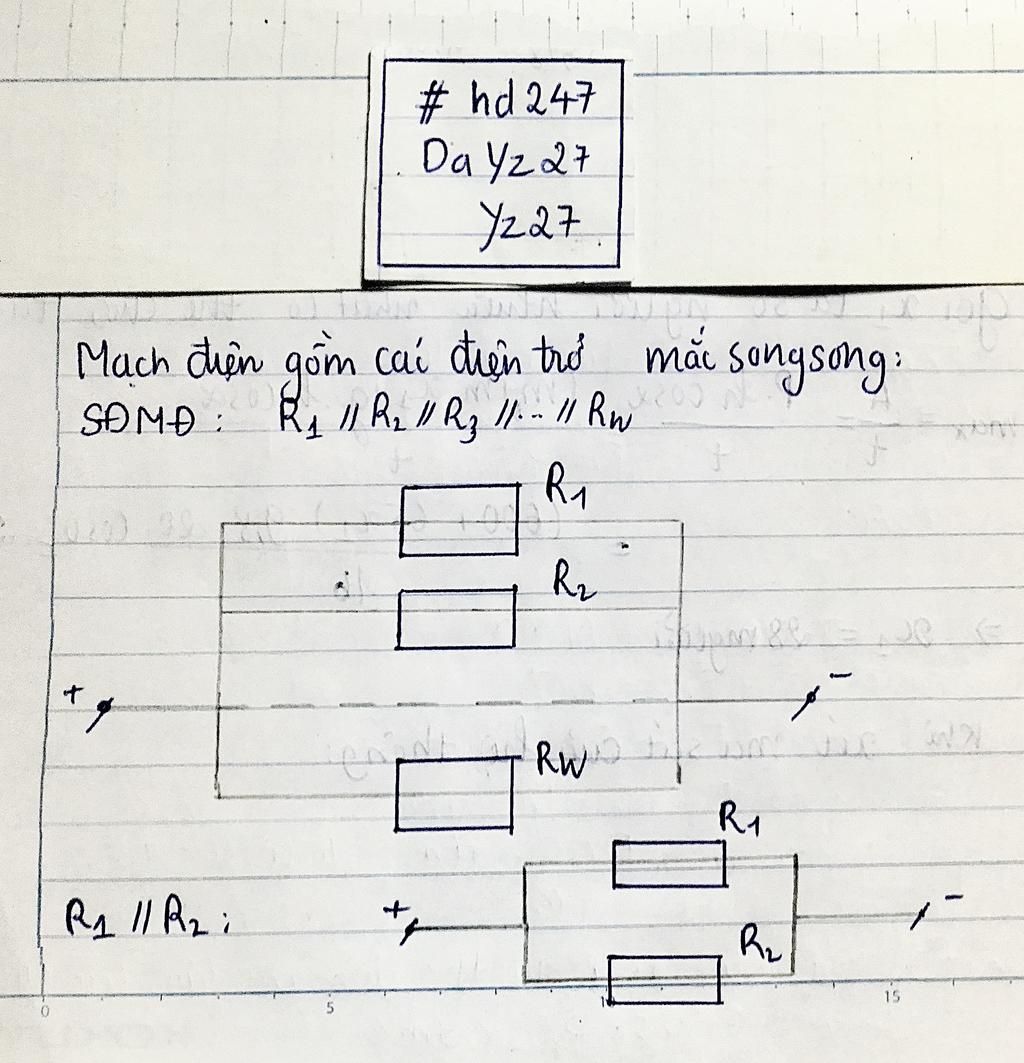 # hd247
Da Yz27
Yz27
Mạch điện gồm cái điện trở mắc songsong:
SĐMĐ: R1 // R2 // R3 //...// RW
R1
R2
+ -
RW
R1
R1 // R2: + -
R2
0 5 15